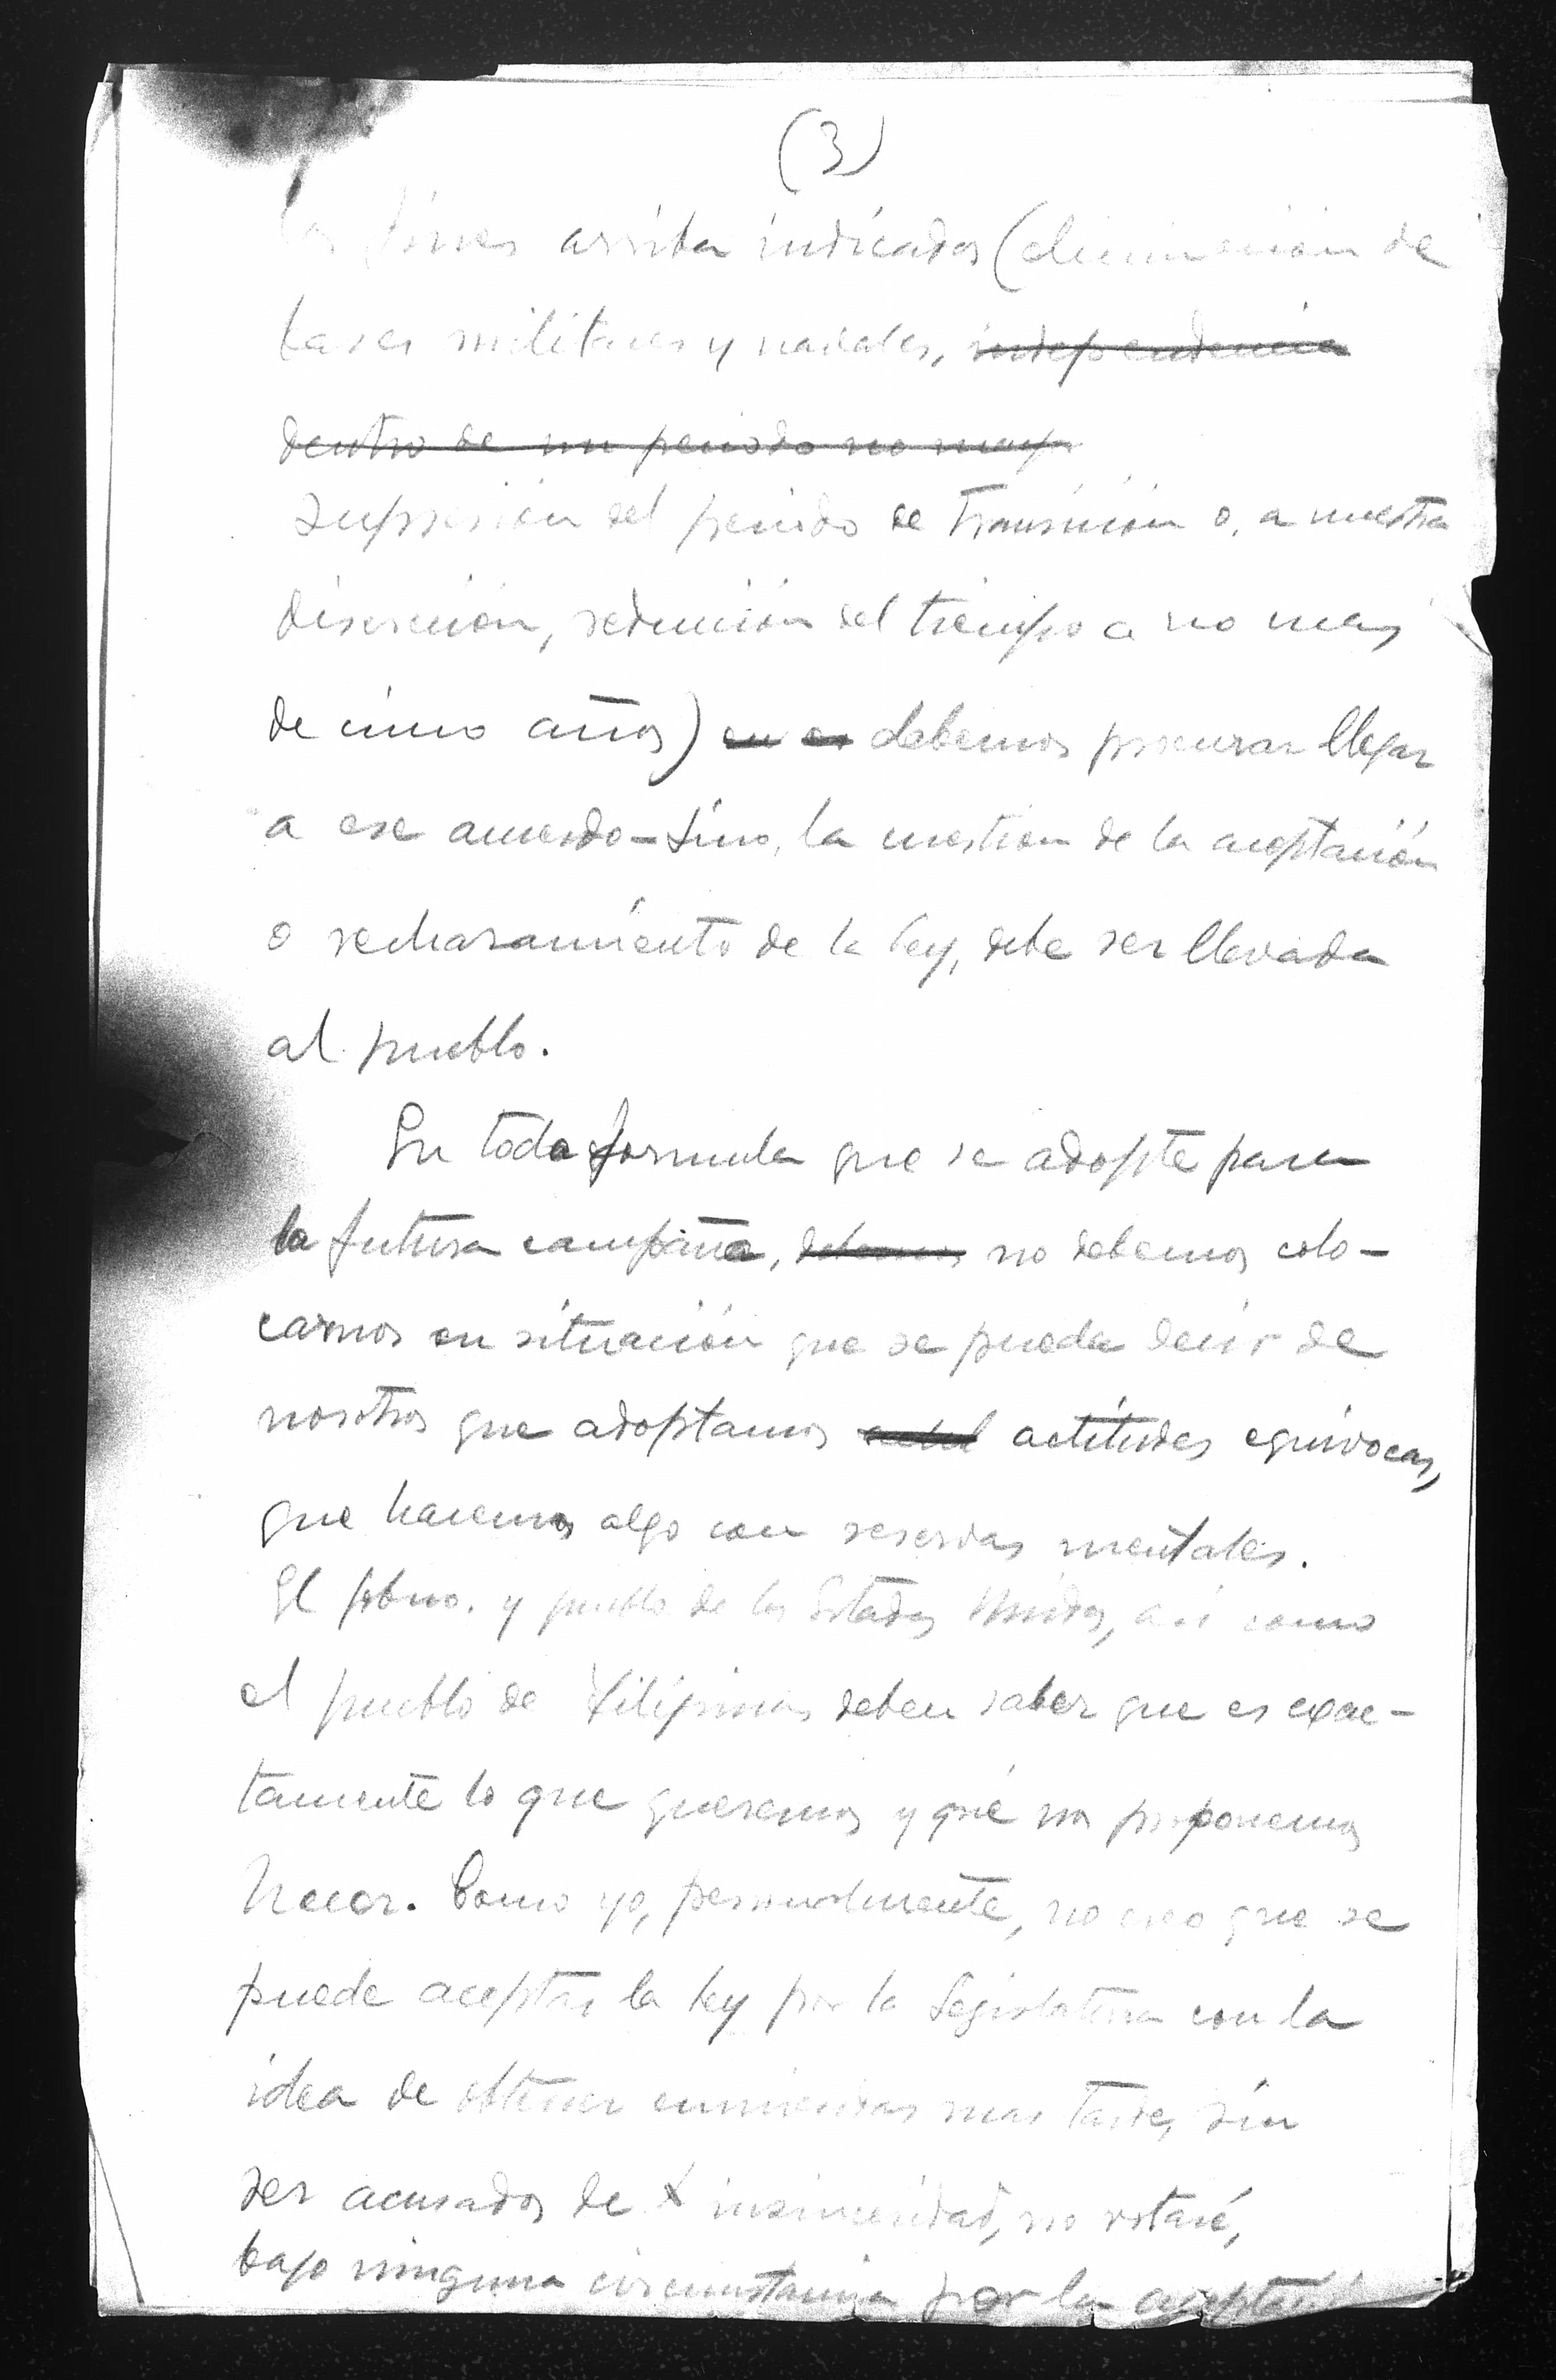 (3)
los fines arriba indicados (eliminación de
bases militares y navales, independencia
dentro de un periodo no mayor
supresión del periodo de transición o, a nuestra
discreción, reducción del tiempo a no mas
de cinco años) en es debemos procurar llegar
a ese acuerdo - Sino, la cuestion de la aceptación
o rechazamiento de la ley, debe ser llevada
al pueblo.
En toda formula que se adopte para
la futura campaña, debemos no debemos colo-
carnos en situación que se pueda decir de
nosotros que adoptamos actitudes equivocas,
que hacemos algo con reservas mentales.
El gobno. y pueblo de los Estados Unidos, asi como
el pueblo de Filipinas deben saber que es exac-
tamente lo que queremos y qué nos proponemos
hacer. Como yo, personalmente, no creo que se
puede aceptar la ley por la Legislatura con la
idea de obtener enmiendas mas tarde, sin
ser acusados de insinceridad, no votaré,
bajo ninguna circunstancia por la